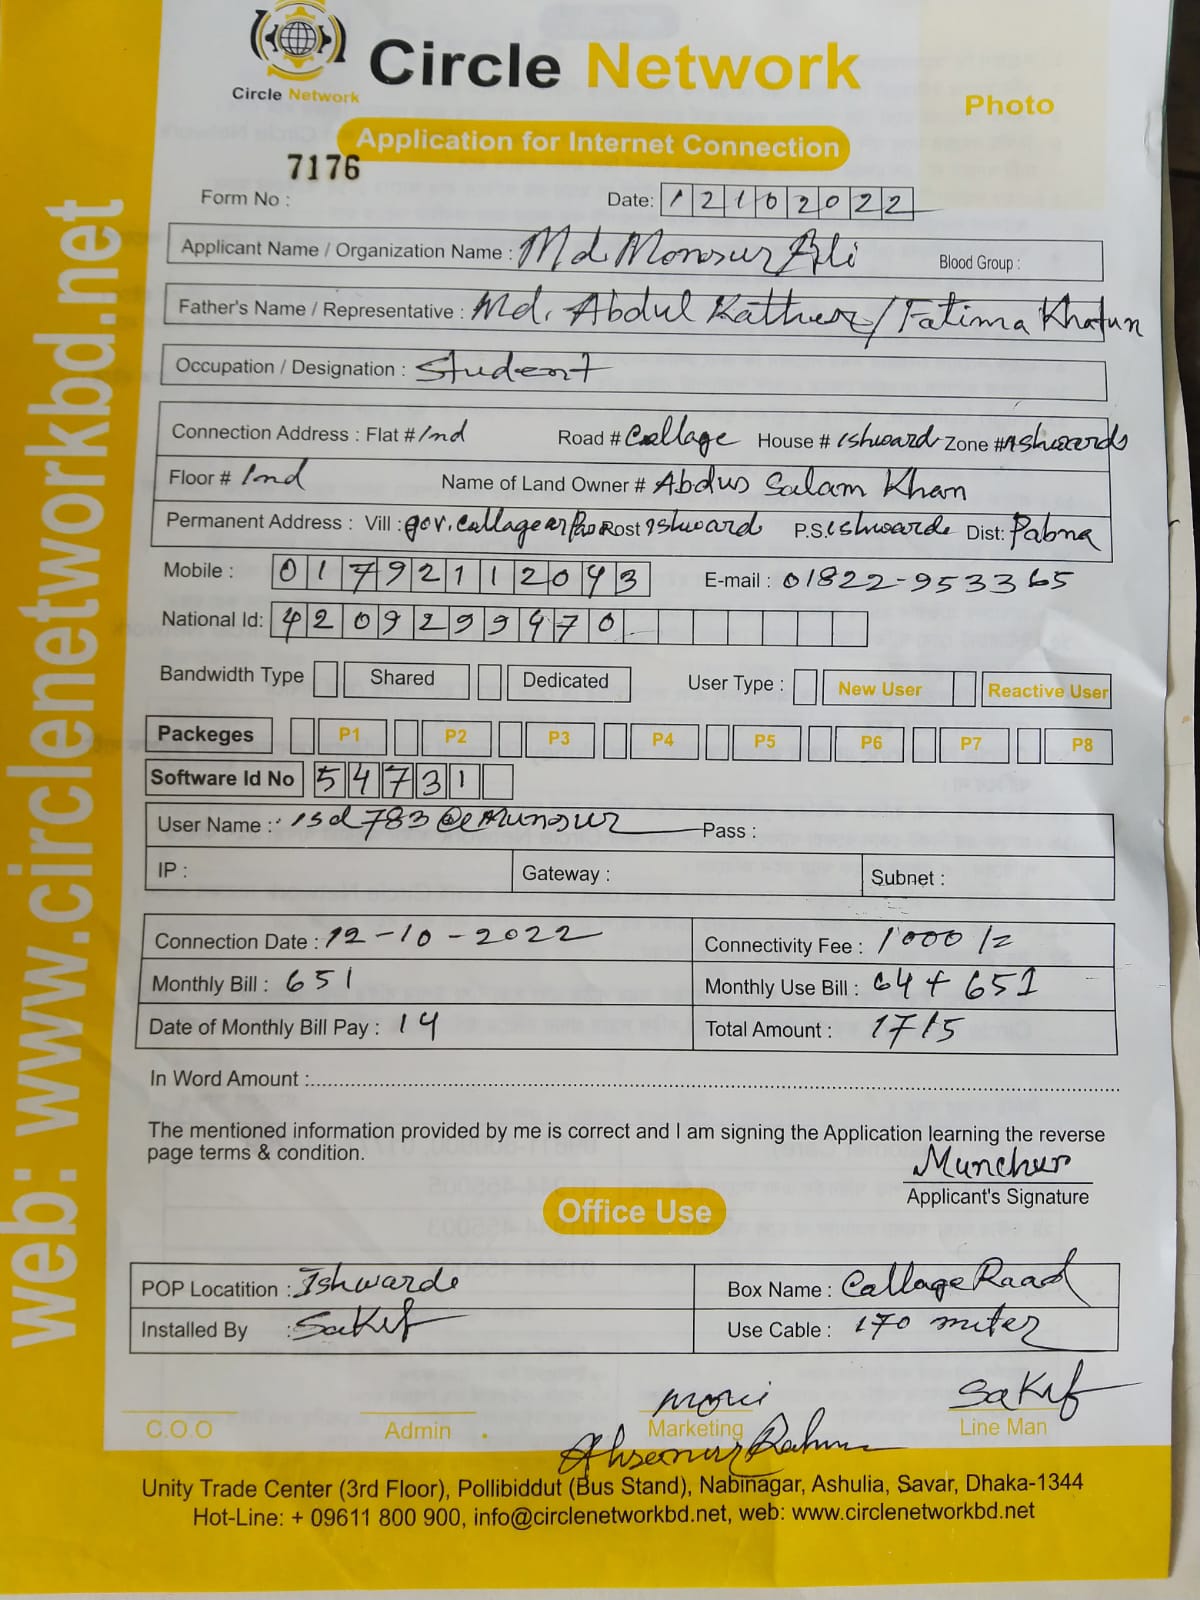 Circle Network
Circle Network
Photo
Application for Internet Connection
7176
Form No :
Date: 12102022
Applicant Name / Organization Name : Md. Monsur Ali
Blood Group :
Father's Name / Representative : Md. Abdul / Fatima Khatun
Occupation / Designation : Student
Connection Address : Flat # 1nd Road # Collage House # Ishward Zone # Ishwards
Floor # 1nd Name of Land Owner # Abdus Salam Khan
Permanent Address : Vill : gov. Callage Post Ishward P.S. Ishwarde Dist: Pabna
Mobile : 01792112043 E-mail : 01822-953365
National Id: 4209299470
Bandwidth Type Shared Dedicated User Type : New User Reactive User
Packeges P1 P2 P3 P4 P5 P6 P7 P8
Software Id No 54731
User Name : isd783@cMunsur Pass :
IP : Gateway : Subnet :
Connection Date : 12-10-2022 Connectivity Fee : 1000/=
Monthly Bill : 651 Monthly Use Bill : 64 + 651
Date of Monthly Bill Pay : 14 Total Amount : 1715
In Word Amount :
The mentioned information provided by me is correct and I am signing the Application learning the reverse
page terms & condition.
Munchur
Applicant's Signature
Office Use
POP Locatition : Ishwarde Box Name : Callage Raad
Installed By : Sakif Use Cable : 170 miter
Sakif
C.O.O Admin Marketing Line Man
Ahsanur Rahman
Unity Trade Center (3rd Floor), Pollibiddut (Bus Stand), Nabinagar, Ashulia, Savar, Dhaka-1344
Hot-Line: + 09611 800 900, info@circlenetworkbd.net, web: www.circlenetworkbd.net
web: www.circlenetworkbd.net